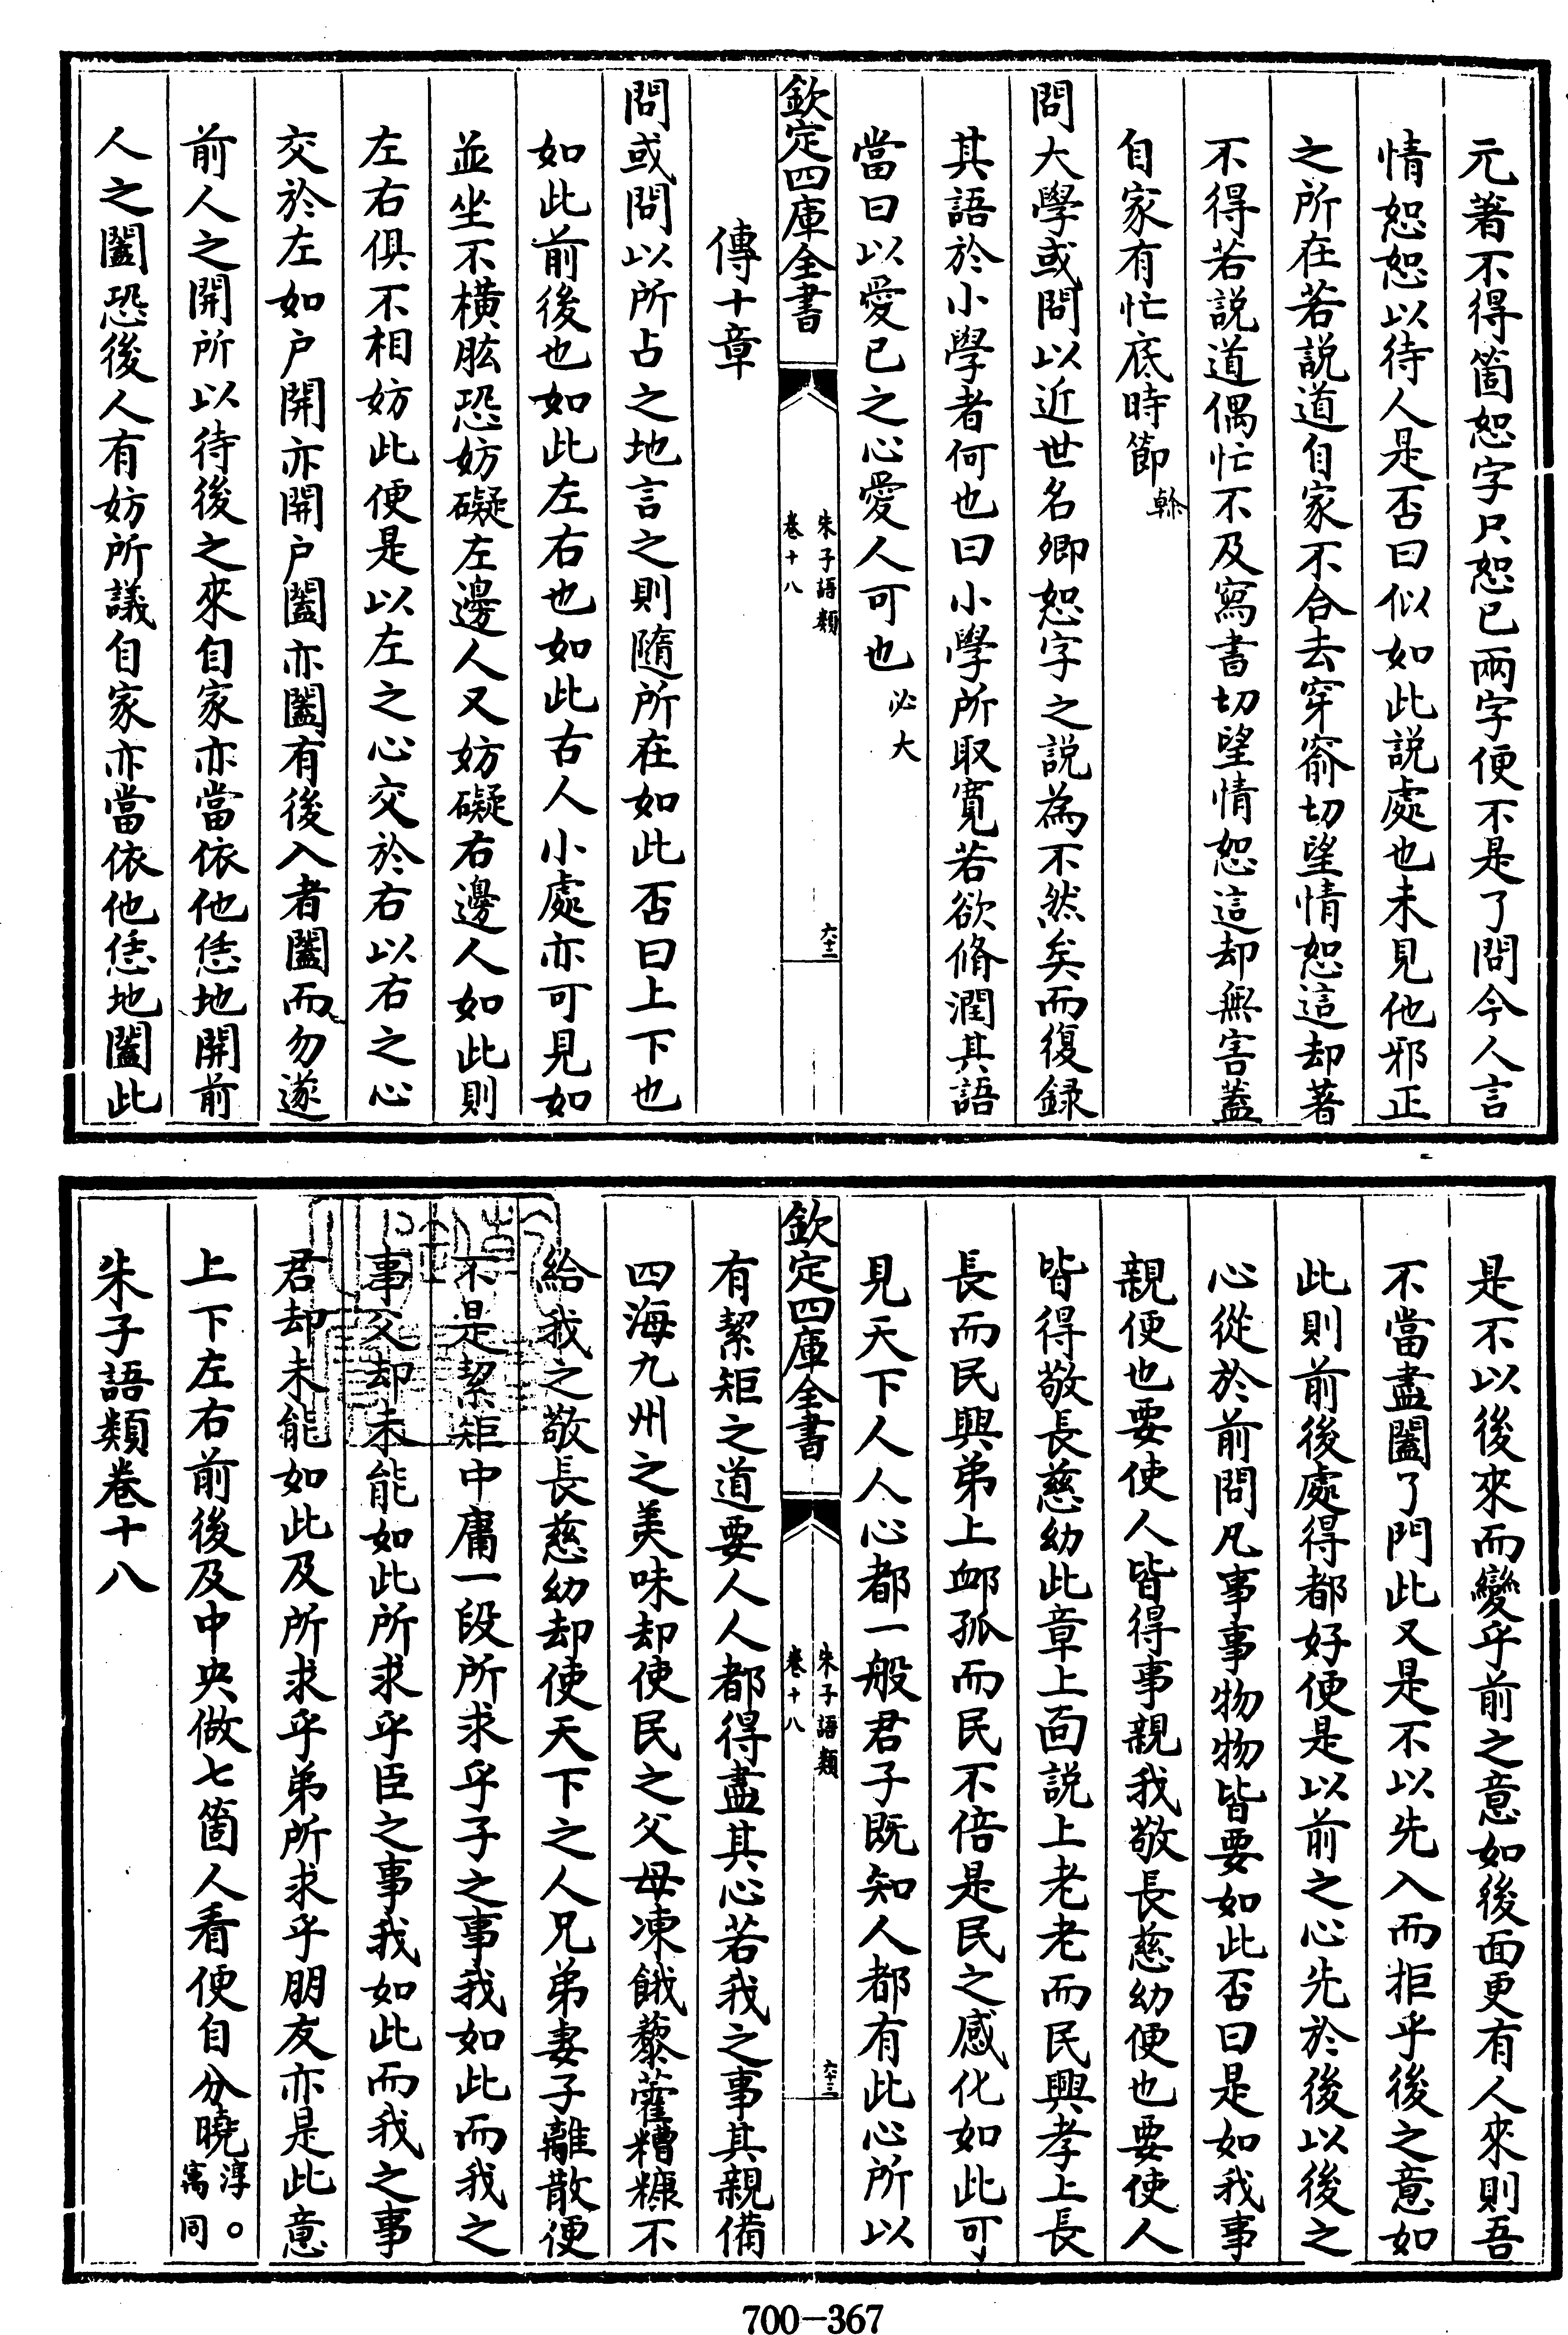 元著不得箇恕字只恕已兩字便不是了問今人言
情恕恕以待人是否曰似如此説處也未見他邪正
之所在若説道自家不合去穿窬切望情恕這却著
不得若説道偶忙不及寫書切望情恕這却無害蓋
自家有忙底時節榦
問大學或問以近世名卿恕字之説為不然矣而復録
其語於小學者何也曰小學所取寛若欲脩潤其語
當曰以愛已之心愛人可也必大
欽定四庫全書
朱子語類
卷十八
六十三
傳十章
問或問以所占之地言之則隨所在如此否曰上下也
如此前後也如此左右也如此右人小處亦可見如
並坐不横肱恐妨礙左邊人又妨礙右邊人如此則
左右俱不相妨此便是以左之心交於右以右之心
交於左如户開亦開户闔亦闔有後入者闔而勿遂
前人之開所以待後之來自家亦當依他恁地開前
人之闔恐後人有妨所議自家亦當依他恁地闔此
是不以後來而變乎前之意如後面更有人來則吾
不當盡闔了門此又是不以先入而拒乎後之意如
此則前後處得都好便是以前之心先於後以後之
心從於前問凡事事物物皆要如此否曰是如我事
親便也要使人皆得事親我敬長慈幼便也要使人
皆得敬長慈幼此章上面説上老老而民興孝上長
長而民興弟上䘏孤而民不倍是民之感化如此可
見天下人人心都一般君子既知人都有此心所以
欽定四庫全書
朱子語類
卷十八
六十三
有絜矩之道要人人都得盡其心若我之事其親備
四海九州之美味却使民之父母凍餓藜藿糟糠不
給我之敬長慈幼却使天下之人兄弟妻子離散便
不是絜矩中庸一段所求乎子之事我如此而我之
事父却未能如此所求乎臣之事我如此而我之事
君却未能如此及所求乎弟所求乎朋友亦是此意
上下左右前後及中央做七箇人看便自分曉淳○
寓同
朱子語類卷十八
700-367